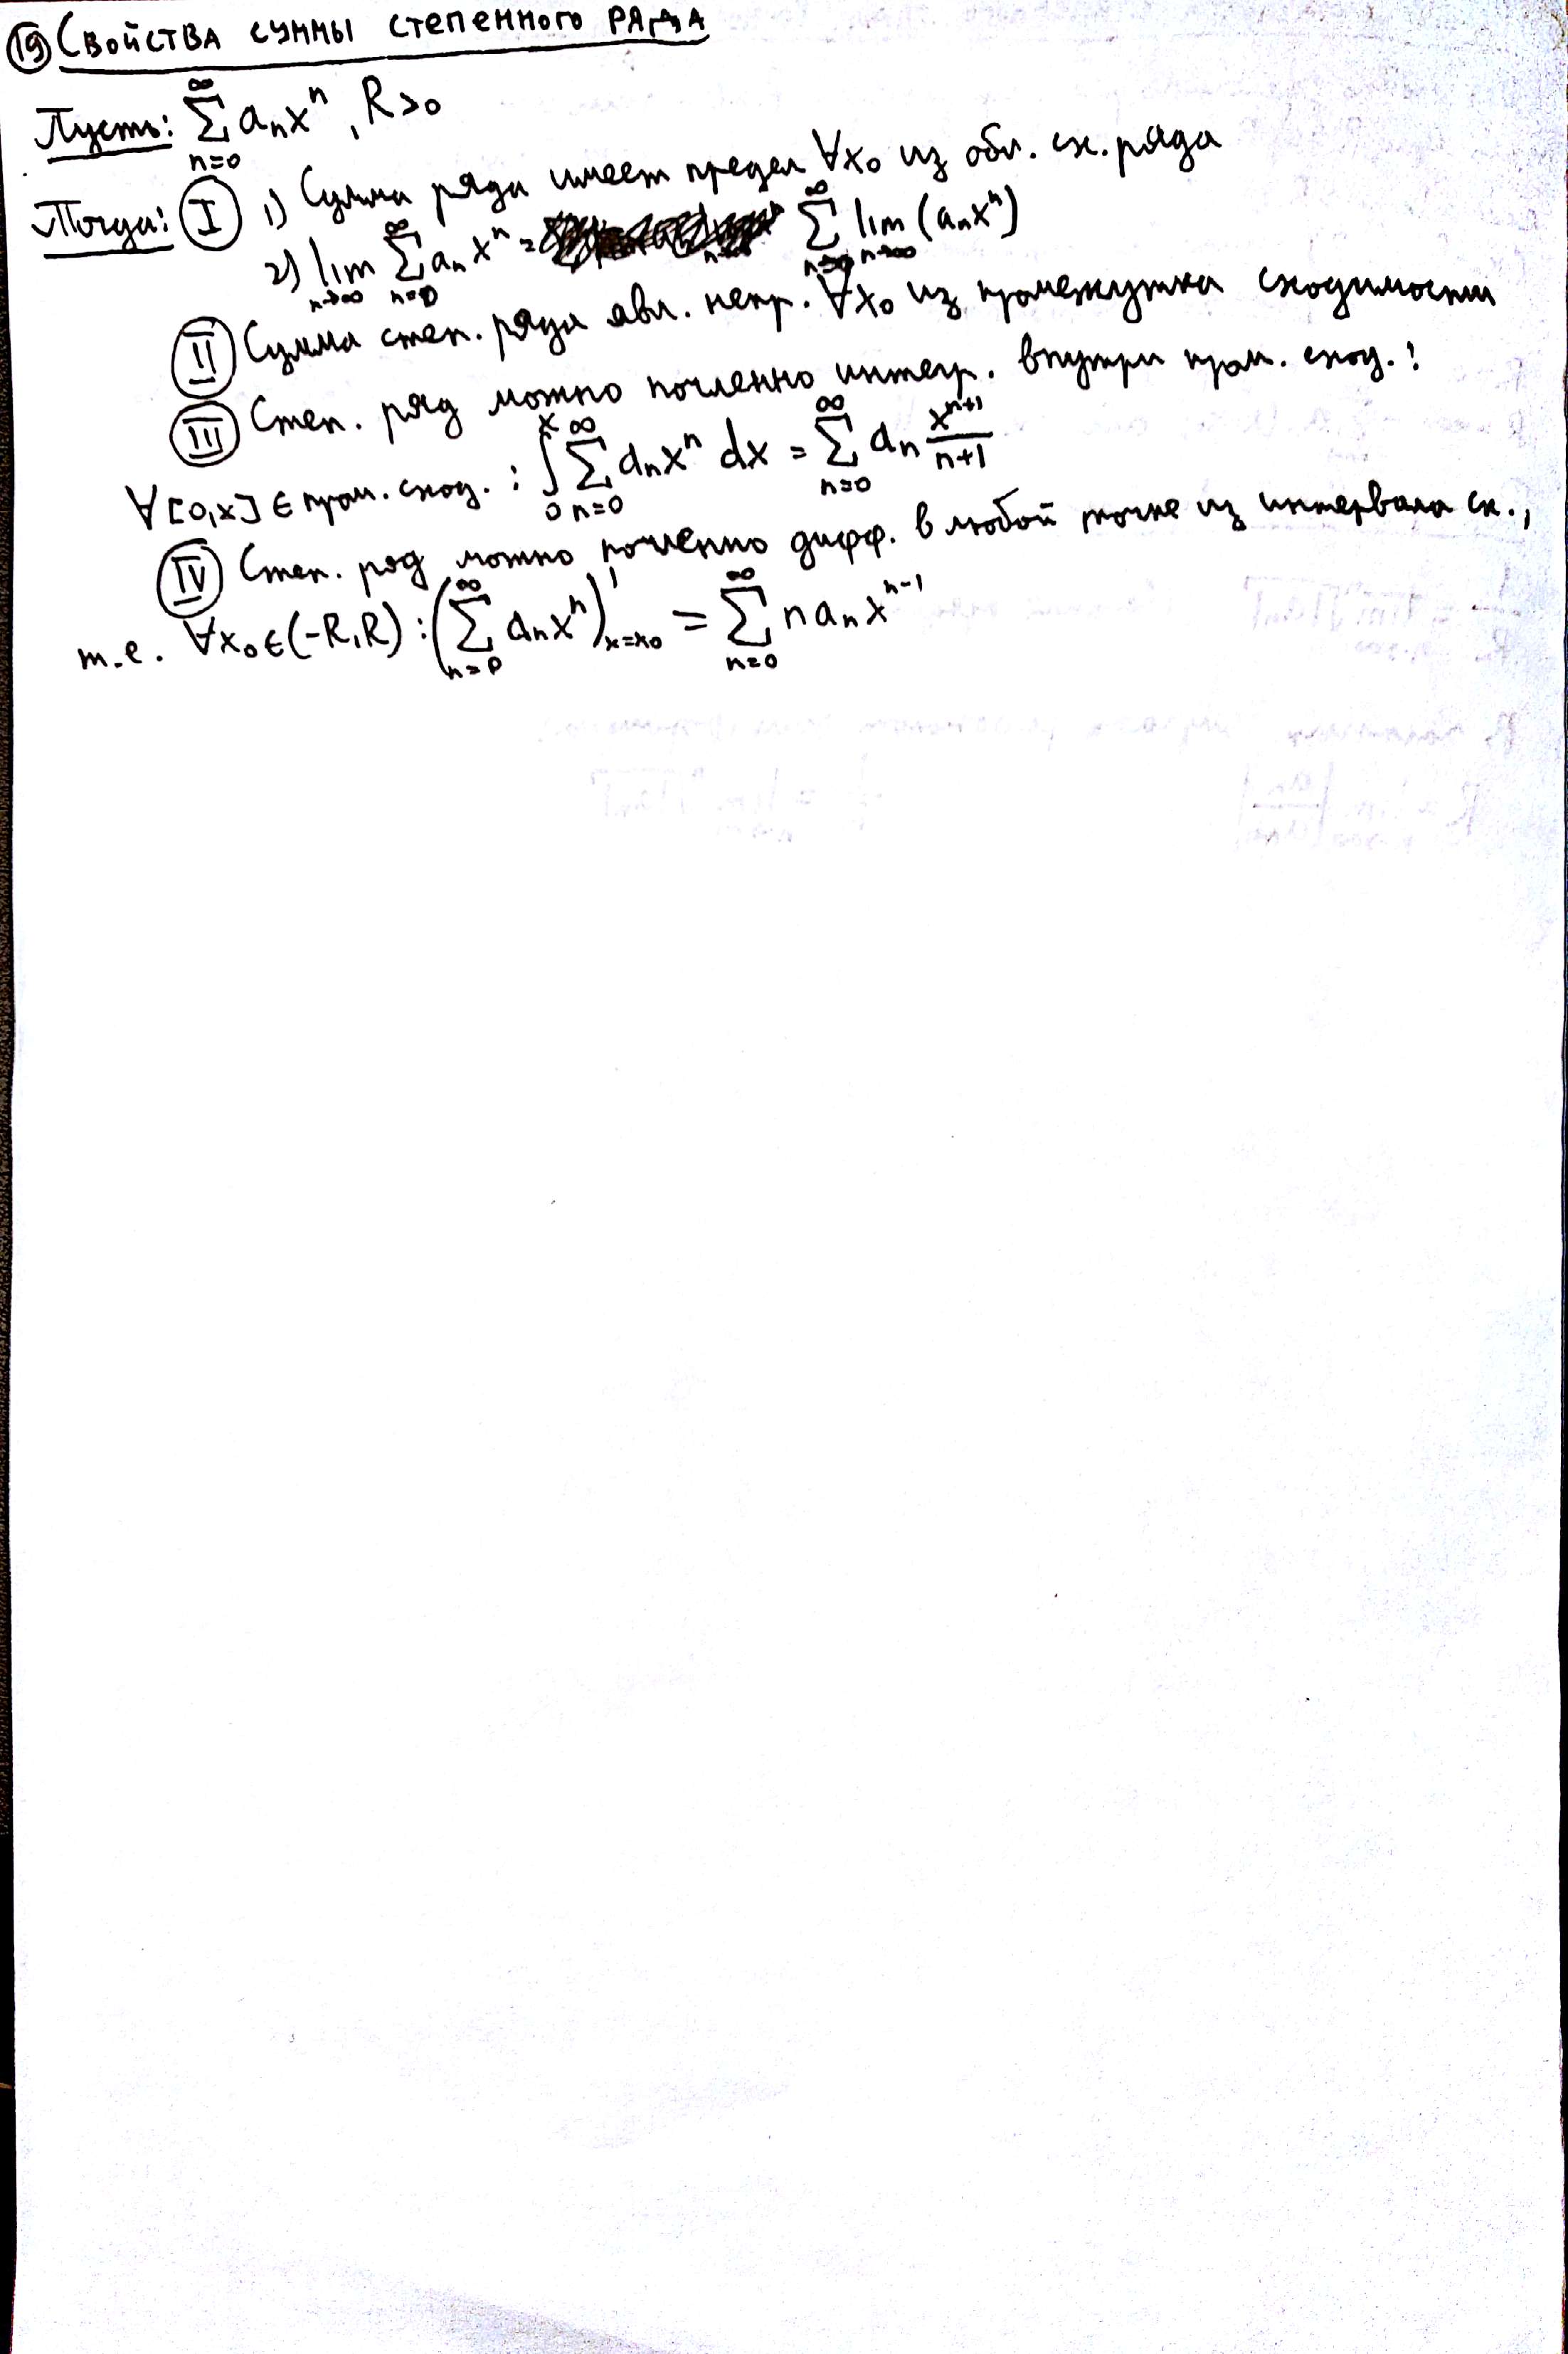 19 Свойства суммы степенного ряда
Пусть: ∑_{n=0}^{∞} aₙxⁿ, R>0
Тогда: I 1) Сумма ряда имеет предел ∀x₀ из обл. сх. ряда
2) lim_{n→∞} ∑_{n=0}^{∞} aₙxⁿ = ∑_{n=0}^{∞} lim_{n→∞} (aₙxⁿ)
II Сумма степ. ряда явл. непр. ∀x₀ из промежутка сходимости
III Степ. ряд можно почленно интегр. внутри пром. сход.:
∀[0,x] ∈ пром. сход. : ∫_{0}^{x} ∑_{n=0}^{∞} aₙxⁿ dx = ∑_{n=0}^{∞} aₙ \frac{x^{n+1}}{n+1}
IV Степ. ряд можно почленно дифф. в любой точке из интервала сх.,
т.е. ∀x₀∈(-R,R) : (∑_{n=0}^{∞} aₙxⁿ)'_{x=x₀} = ∑_{n=0}^{∞} n aₙ x^{n-1}